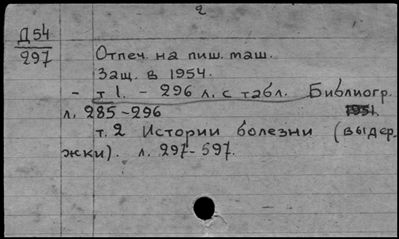 2
Д54
297
Отпеч. на пиш. маш.
Защ. в 1954.
- т 1. - 296 л. с табл. Библиогр.
л. 285-296
т. 2 Истории болезни (выдер-
жки). л. 297-597.